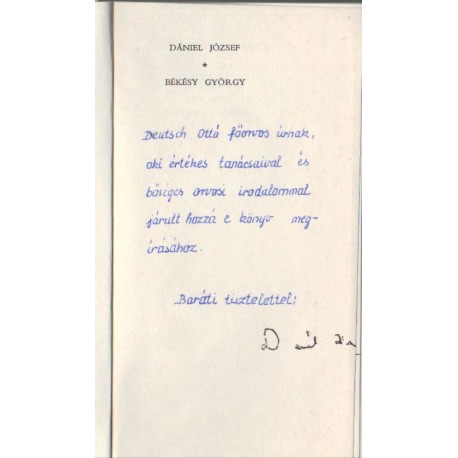 DÁNIEL JÓZSEF
★
BÉKÉSY GYÖRGY
Deutsch Ottó főorvos úrnak,
aki értékes tanácsaival és
bőséges orvosi irodalommal
járult hozzá e könyv meg-
írásához.
Baráti tisztelettel: